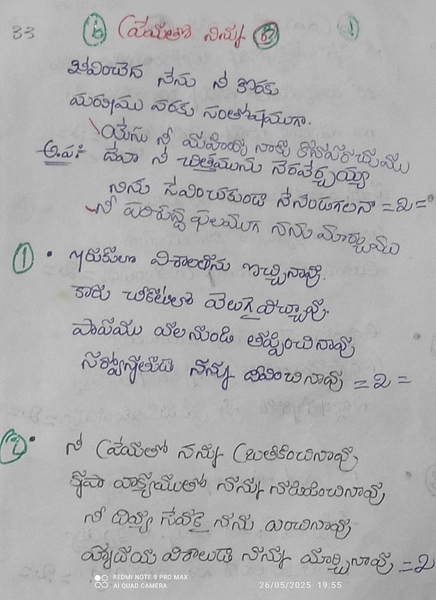 33 6 ప్రేమతో నిన్ను
జీవించెద నేను నీ కొరకు
మరణము వరకు సంతోషముగా.
యేసు నీ మహిమ నాకు కనపరచుము
అ.ప: దేవా నీ చిత్తమును నెరవేర్చుయ్యా
నిను సేవించకుండా నేనుండగలనా =2=
నీ పరిశుద్ధ ఫలముగ నను మార్చుము
1 • ఇరుకులో విశాలతను ఇచ్చినావు.
కారు చీకటిలో వెలుగై వచ్చావు.
పాపము వలనుండి తప్పించినావు
సర్వోన్నతుడా నన్ను దీవించినావు =2=
2 • నీ ప్రేమతో నన్ను బ్రతికించినావు
కృపా వాక్యముతో నన్ను నడిపించినావు
నీ దివ్య సేవకై నను పిలచినావు
హృదయ విశాలుడా నన్ను మార్చినావు =2
REDMI NOTE 9 PRO MAX
AI QUAD CAMERA
26/05/2025 19:55